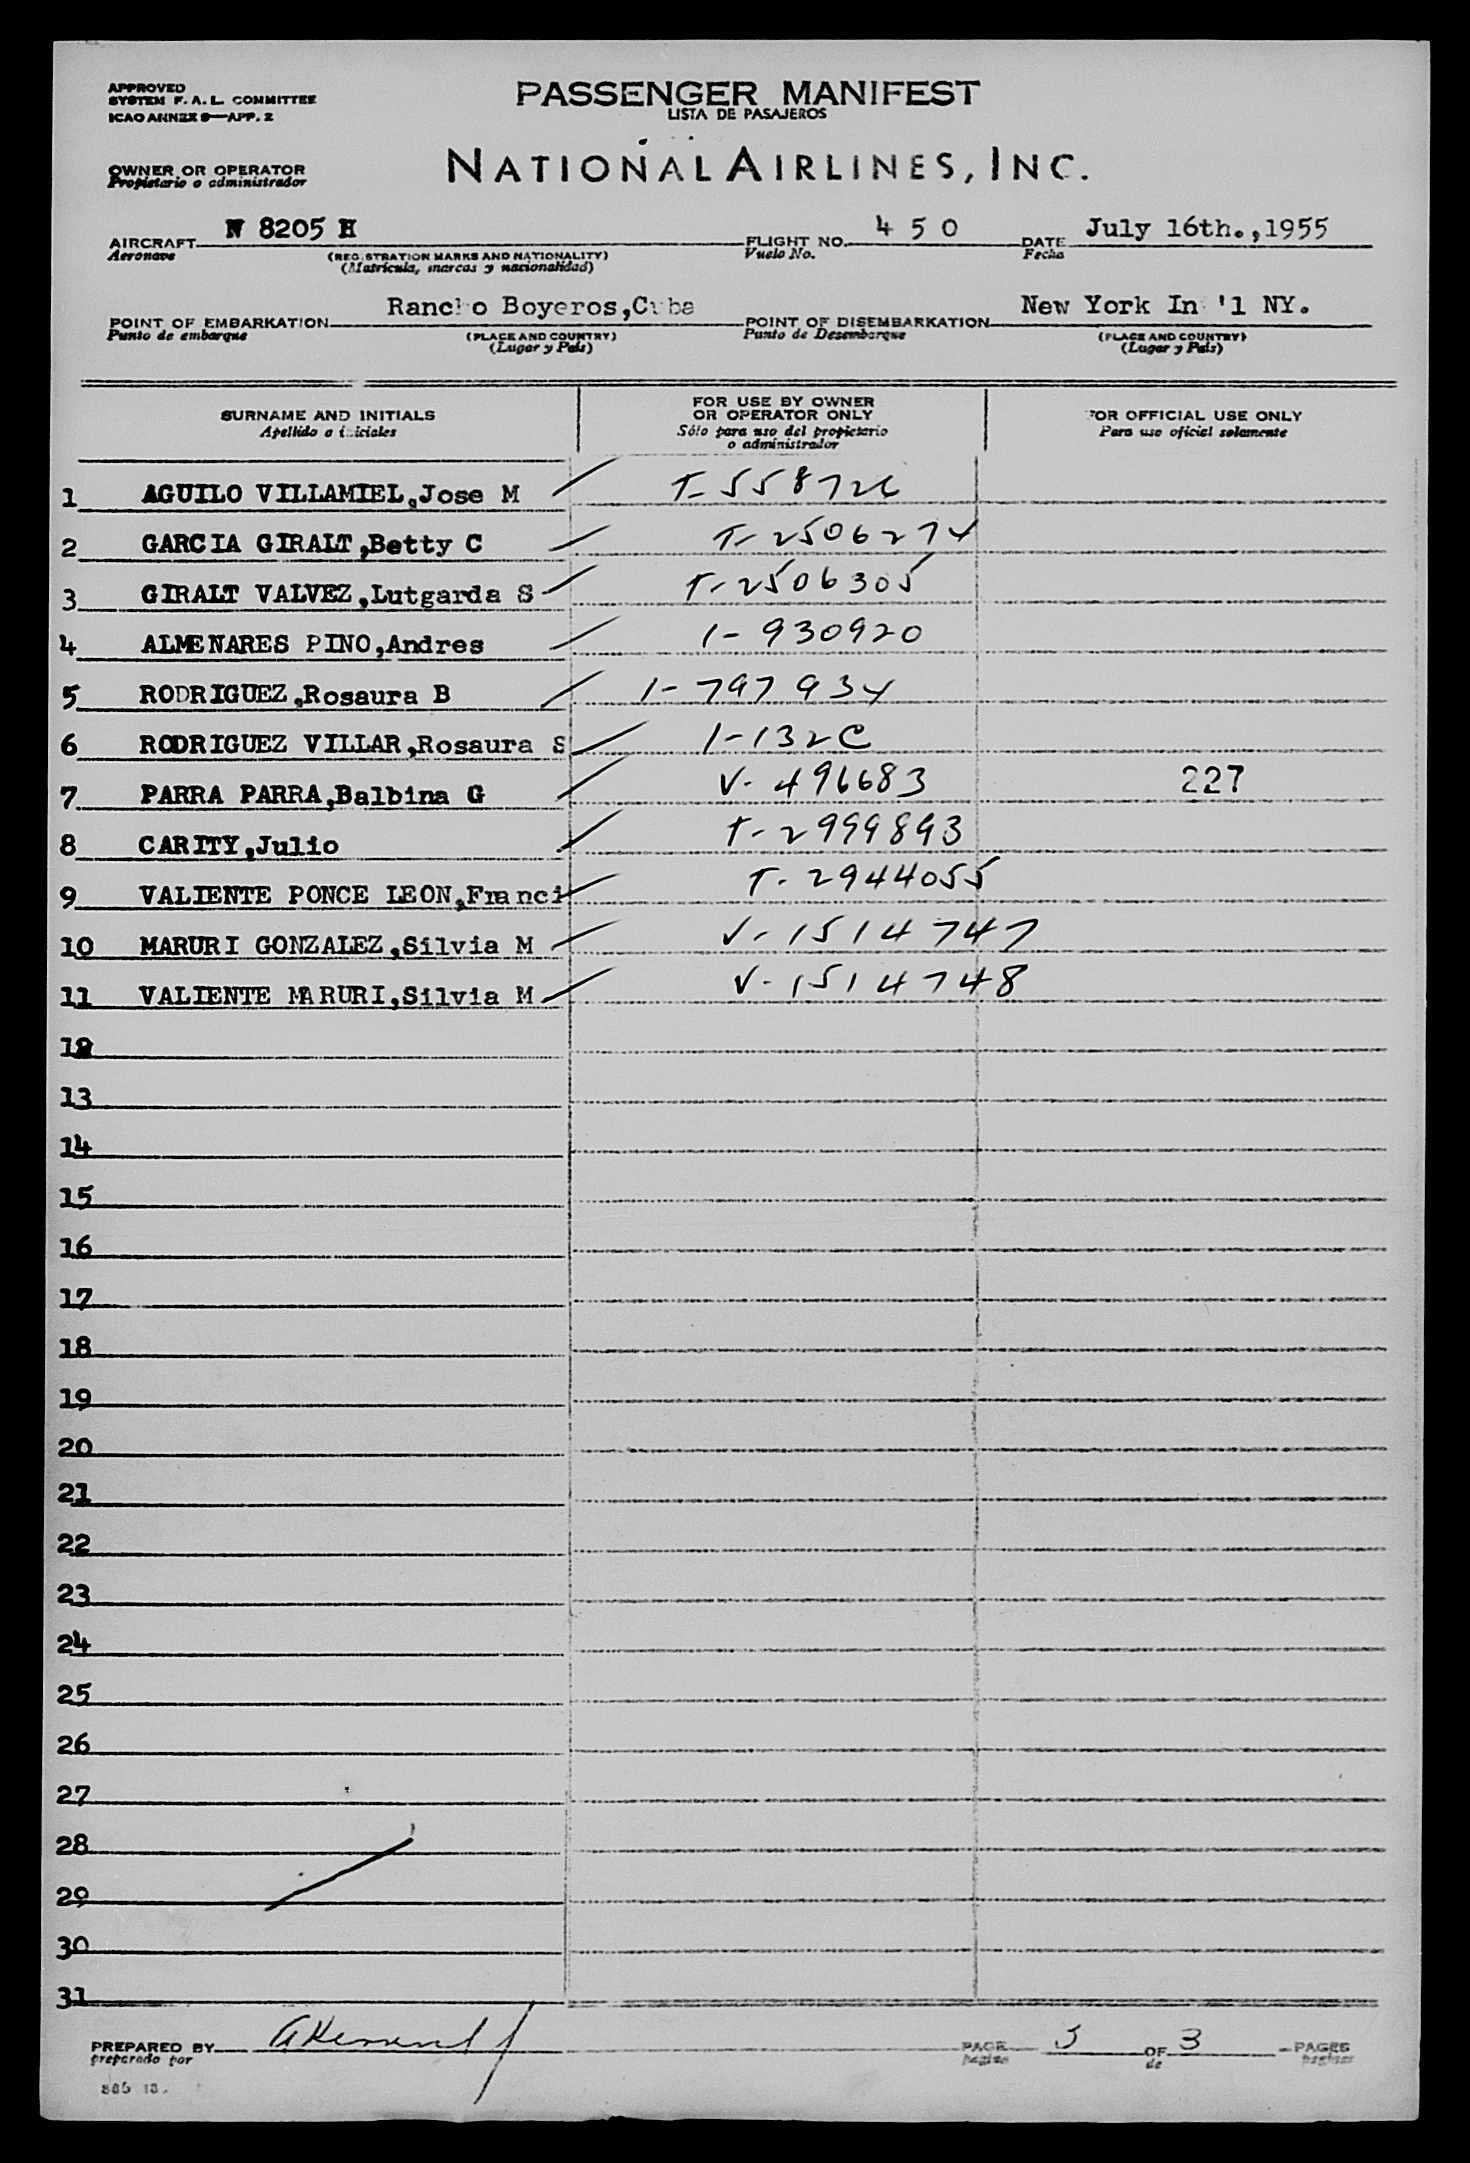 APPROVED
SYSTEM F. A. L. COMMITTEE
ICAO ANNEX 9—APP. 2
PASSENGER MANIFEST
LISTA DE PASAJEROS
OWNER OR OPERATOR
Propietario o administrador
NATIONAL AIRLINES, INC.
AIRCRAFT N 8205 H FLIGHT NO. 4 5 0 DATE July 16th.,1955
Aeronave (REGISTRATION MARKS AND NATIONALITY) Vuelo No. Fecha
(Matrícula, marcas y nacionalidad)
POINT OF EMBARKATION Rancho Boyeros,Cuba POINT OF DISEMBARKATION New York In '1 NY.
Punto de embarque (PLACE AND COUNTRY) Punto de Desembarque (PLACE AND COUNTRY)
(Lugar y País) (Lugar y País)
SURNAME AND INITIALS
Apellido o iniciales
FOR USE BY OWNER
OR OPERATOR ONLY
Sólo para uso del propietario
o administrador
FOR OFFICIAL USE ONLY
Para uso oficial solamente
1 AGUILO VILLAMIEL,Jose M
2 GARCIA GIRALT,Betty C T-2506274
3 GIRALT VALVEZ,Lutgarda S T-2506305
4 ALMENARES PINO,Andres 1-930920
5 RODRIGUEZ,Rosaura B 1-797934
6 RODRIGUEZ VILLAR,Rosaura S 1-132C
7 PARRA PARRA,Balbina G V-496683 227
8 CARITY,Julio T-2999893
9 VALIENTE PONCE LEON,Franci T-2944055
10 MARURI GONZALEZ,Silvia M V-1514747
11 VALIENTE MARURI,Silvia M V-1514748
12
13
14
15
16
17
18
19
20
21
22
23
24
25
26
27
28
29
30
31
PREPARED BY PAGE 3 OF 3 PAGES
preparado por página de páginas